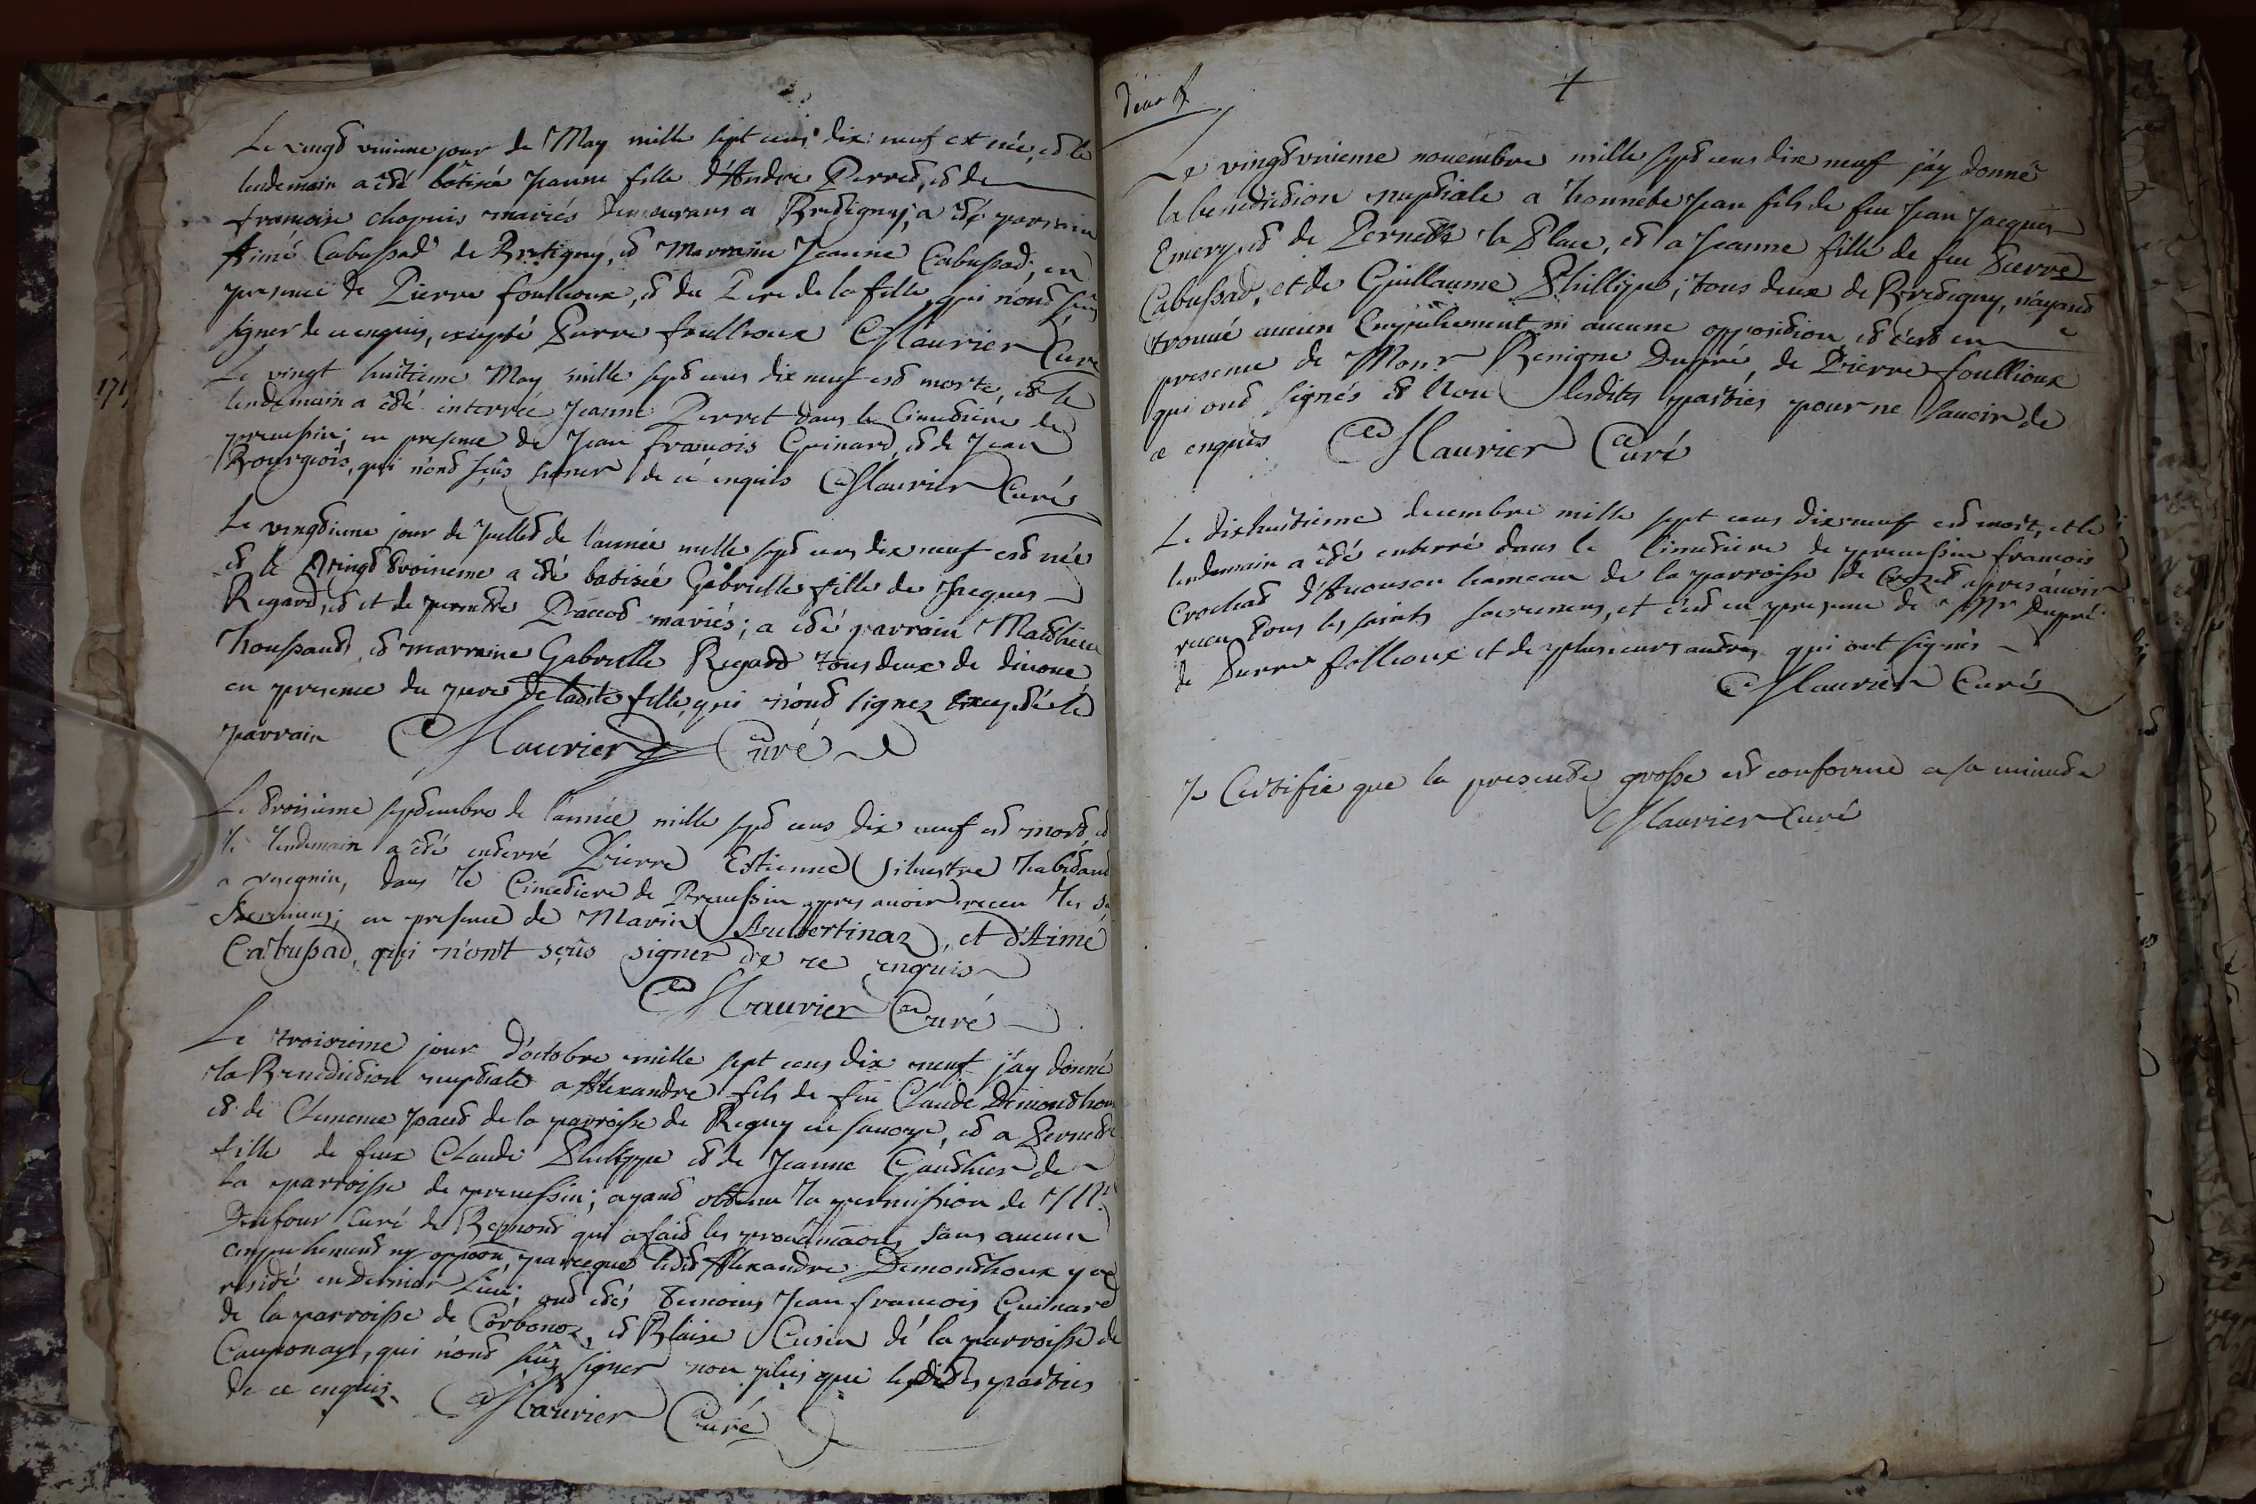 Le vingt unieme jour de May mille sept cens dix neuf est née, et le
lendemain a été bâtisée Jeanne fille d'Andre Perret, et de
francoise chapuis mariés demeurans a Bretigny, a été parrain
Aimé Cabussad de Bretigny, et Marraine Jeanne Cabussad, en
presence de Pierre foullioux, et du Pere de la fille, qui n'ont sçus
signer de ce enquis, excepté Pierre foullioux Maurier Curé
1719
Le vingt huitieme May mille sept cens dix neuf est morte, et le
lendemain a été interrée Jeanne Perret dans le Cimetiere de
prevessin; en presence de Jean francois Guinard, et de Jean
Bourgeois, qui n'ont sçus signer de ce enquis Maurier Curé
Le vingtieme jour de Juillet de l'année mille sept cens dix neuf est née
et le vingt troisieme a été batisée Gabrielle fille de Jacques
Regard, et et de pernette Paccot mariés; a été parrain Mathieu
Troussaud, et marraine Gabrielle Regard tous deux de
en presence du pere de ladite fille, qui n'ont signez excepté le
parrain Maurier Curé
Le troisieme septembre de l'année mille sept cens dix neuf est mort, et
le lendemain a été enterré Pierre Estienne Silvestre habitant
a vesegnin, dans le Cimetiere de Prevessin apres avoir receu les
Sacremens; en presence de Marin Aubertinaz, et d'Aimé
Cabussad, qui n'ont sçûs signer de ce enquis
Maurier Curé
Le troisieme jour d'octobre mille sept cens dix neuf j'ay donné
la Benediction nuptiale a Alexandre fils de feu Claude Demonthoux
et de Clemence pacet de la parroisse de Regny en savoye, et a Pernette
fille de feux Claude Philippe et de Jeanne Gauthier de
la parroisse de prevessin; ayant obtenu la permission de Mr
Dufour Curé de qui a fait les proclamaons sans aucun
empechement ny opposon, parceque ledit Alexandre Demonthoux y a
residé en dernier lieu; ont etés temoins Jean francois Guinard
de la parroisse de Corbonoz, et Blaise Cusin de la parroisse de
qui n'ont sçûs signer non plus que lesdites parties
de ce enquis Maurier Curé
+
Le vingt unieme novembre mille sept cens dix neuf j'ay donné
la benediction nuptiale a honnete Jean fils de feu Jean Jacques
Emery, et de Pernette la Place, et a Jeanne fille de feu Pierre
Cabussad, et de Guillaume Phillipe, tous deux de Bretigny, n'ayant
trouvé aucun Empechement ni aucune opposition et c'est en
presence de Monr Benigne Dupré, de Pierre foullioux
qui ont signés et Non lesdites parties pour ne savoir de
ce enquis Maurier Curé
Le dixhuitieme decembre mille sept cens dix neuf est mort, et le
lendemain a été enterré dans le Cimetiere de prevessin francois
Crochat d'Avouson hameau de la parroisse de Crozet apres avoir
receu tous les saints sacremens, et c'est en presence de Mr Dupré
de Pierre follioux et de plusieurs autres qui ont signés
Maurier Curé
Je Certifie que la presente grosse est conforme a sa minute
Maurier Curé